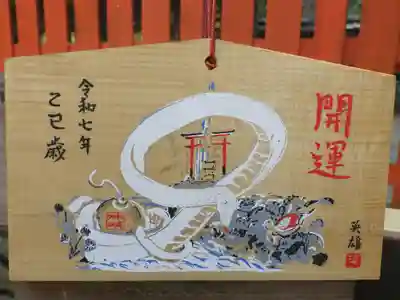 開運
令和七年
乙巳歳
英雄